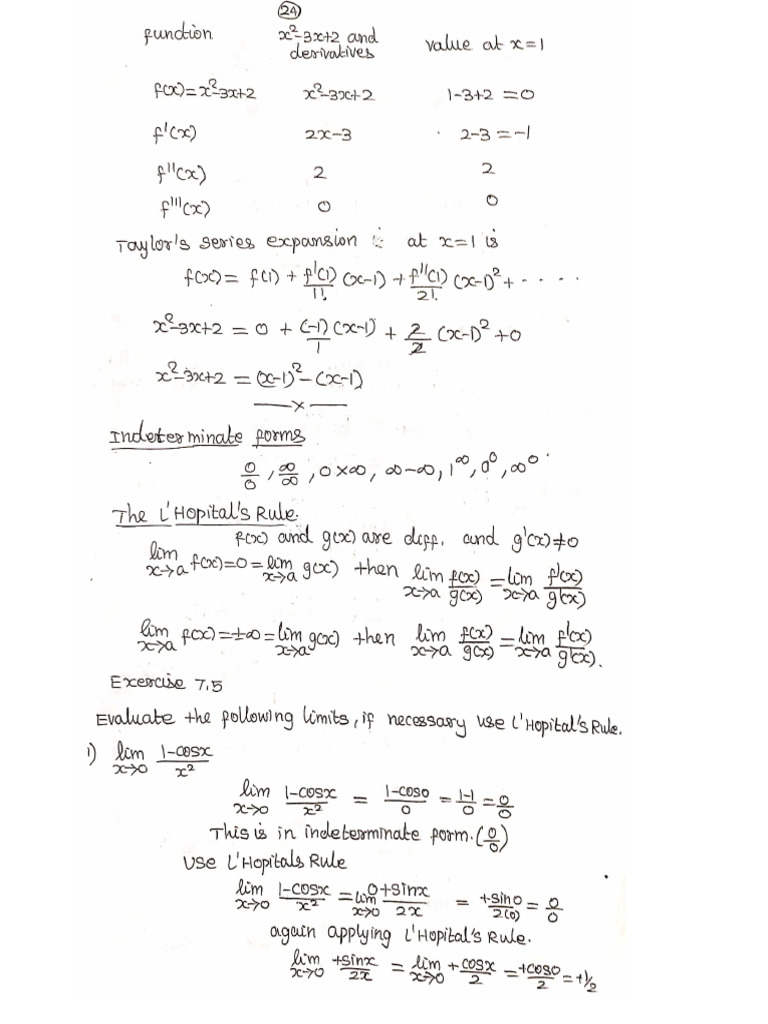 (24)
function x²-3x+2 and derivatives value at x=1
f(x)=x²-3x+2 x²-3x+2 1-3+2=0
f'(x) 2x-3 2-3=-1
f''(x) 2 2
f'''(x) 0 0
Taylor's series expansion at x=1 is
f(x) = f(1) + f'(1)/1! (x-1) + f''(1)/2! (x-1)² + .....
x²-3x+2 = 0 + (-1)/1 (x-1) + 2/2 (x-1)² + 0
x²-3x+2 = (x-1)² - (x-1)
—x—
Indeterminate forms
0/0, ∞/∞, 0×∞, ∞-∞, 1^∞, 0^0, ∞^0.
The L'Hopital's Rule.
f(x) and g(x) are diff. and g'(x)≠0
lim x→a f(x)=0=lim x→a g(x) then lim x→a f(x)/g(x) = lim x→a f'(x)/g'(x)
lim x→a f(x)=±∞=lim x→a g(x) then lim x→a f(x)/g(x) = lim x→a f'(x)/g'(x).
Exercise 7.5
Evaluate the following limits, if necessary use L'Hopital's Rule.
1) lim x→0 1-cosx/x²
lim x→0 1-cosx/x² = 1-cos0/0 = 1-1/0 = 0/0
This is in indeterminate form. (0/0)
Use L'Hopitals Rule
lim x→0 1-cosx/x² = lim x→0 0+sinx/2x = +sin0/2(0) = 0/0
again applying L'Hopital's Rule.
lim x→0 +sinx/2x = lim x→0 +cosx/2 = +cos0/2 = +1/2